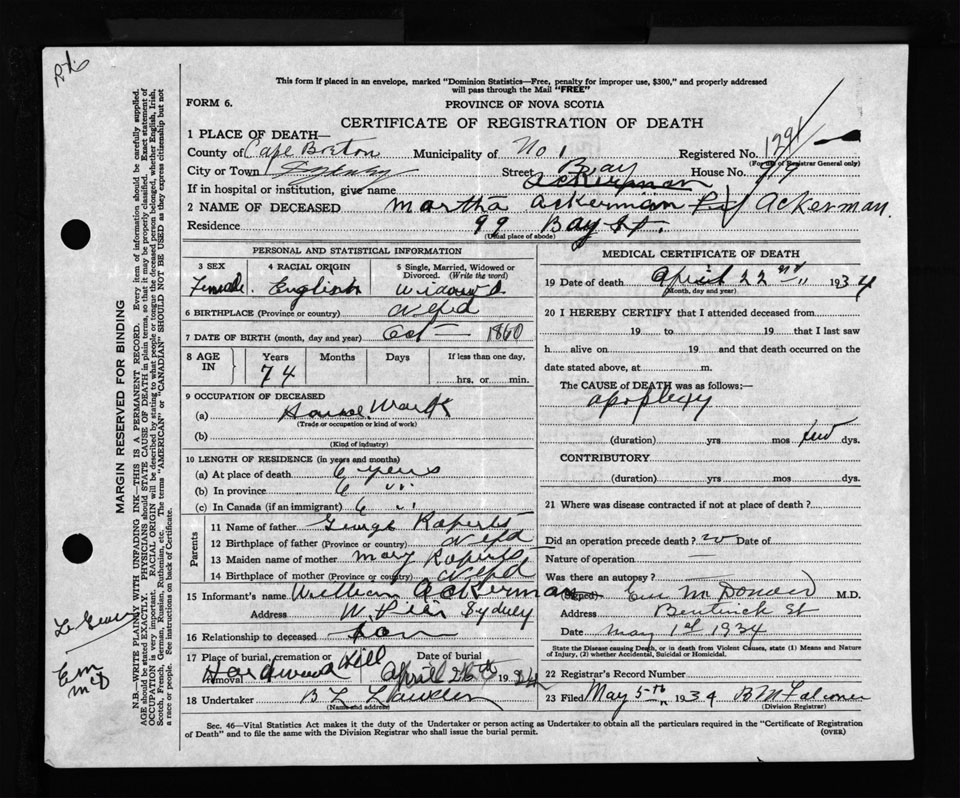 This form if placed in an envelope, marked "Dominion Statistics—Free, penalty for improper use, $300," and properly addressed
will pass through the Mail "FREE"
FORM 6.
PROVINCE OF NOVA SCOTIA
CERTIFICATE OF REGISTRATION OF DEATH
1 PLACE OF DEATH—
County of Cape Breton Municipality of No 1 Registered No. 1291
(For use of Registrar General only)
City or Town Sydney Street Bay House No. 99
If in hospital or institution, give name Ackerman
2 NAME OF DECEASED Martha Ackerman Ackerman.
Residence 99 Bay St.
(Usual place of abode)
PERSONAL AND STATISTICAL INFORMATION
3 SEX Female.
4 RACIAL ORIGIN English
5 Single, Married, Widowed or Divorced. (Write the word) Widowed
6 BIRTHPLACE (Province or country) Nfld
7 DATE OF BIRTH (month, day and year) Oct — 1860
8 AGE IN Years Months Days If less than one day,
74 hrs. or min.
9 OCCUPATION OF DECEASED
(a) House Work
(Trade or occupation or kind of work)
(b)
(Kind of industry)
10 LENGTH OF RESIDENCE (in years and months)
(a) At place of death 6 years
(b) In province 6 "
(c) In Canada (if an immigrant) 6 "
Parents
11 Name of father George Roperts
12 Birthplace of father (Province or country) Nfld
13 Maiden name of mother Mary Roperts
14 Birthplace of mother (Province or country) Nfld
15 Informant's name William Ackerman
Address W. Pier Sydney
16 Relationship to deceased Son
17 Place of burial, cremation or removal Hardwood Hill
Date of burial April 26th 1934
18 Undertaker
(Name and address)
MEDICAL CERTIFICATE OF DEATH
19 Date of death April 22nd " 1934
(Month, day and year)
20 I HEREBY CERTIFY that I attended deceased from
19 to 19 that I last saw
h alive on 19 and that death occurred on the
date stated above, at m.
The CAUSE of DEATH was as follows:—
apoplexy
(duration) yrs mos few dys.
CONTRIBUTORY
(duration) yrs mos dys.
21 Where was disease contracted if not at place of death?
Did an operation precede death? no Date of
Nature of operation
Was there an autopsy?
(Signed) M.D.
Address Bentinck St
Date May 1st 1934
State the Disease causing Death, or in death from Violent Causes, state (1) Means and
Nature of Injury, (2) whether Accidental, Suicidal or Homicidal.
22 Registrar's Record Number
23 Filed May 5th 1934 B M Falconer
(Division Registrar)
Sec. 46—Vital Statistics Act makes it the duty of the Undertaker or person acting as Undertaker to obtain all the particulars required in the "Certificate of Registration
of Death" and to file the same with the Division Registrar who shall issue the burial permit.
(OVER)
MARGIN RESERVED FOR BINDING
N.B.—WRITE PLAINLY WITH UNFADING INK—THIS IS A PERMANENT RECORD. Every item of information should be carefully supplied.
AGE should be stated EXACTLY. PHYSICIANS should STATE CAUSE OF DEATH in plain terms, so that it may be properly classified. Exact statement of
OCCUPATION is very important. RACIAL ORIGIN will be described by stating to what people or tongue the deceased person belonged, whether English, Irish,
Scotch, French, German, Russian, Ruthenian, etc. The terms "AMERICAN" or "CANADIAN" SHOULD NOT BE USED as they express citizenship but not
a race or people. See instructions on back of Certificate.